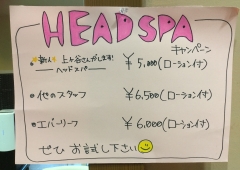 HEADSPA
キャンペーン
新人 上ヶ谷さんがします!
ヘッドスパー ¥5,000(ローション付)
・他のスタッフ ¥6,500(ローション付)
・エバーリーフ ¥6,000(ローション付)
ぜひ お試し下さい